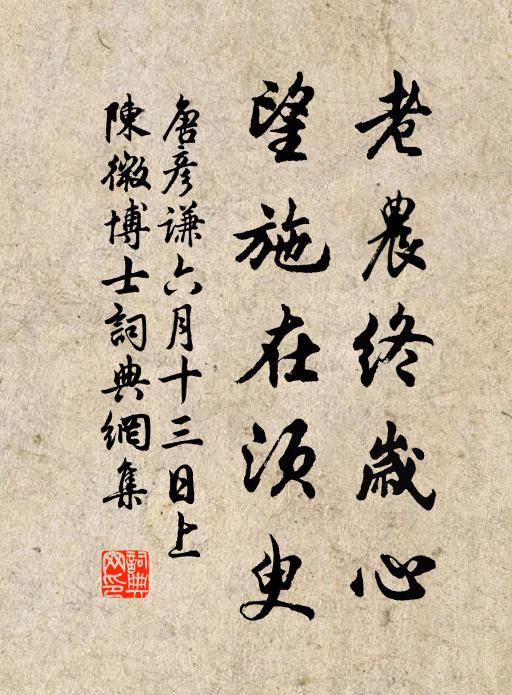 老農終歲心
望施在須臾
唐彥謙六月十三日上
陳微博士詞典網集
詞典网印